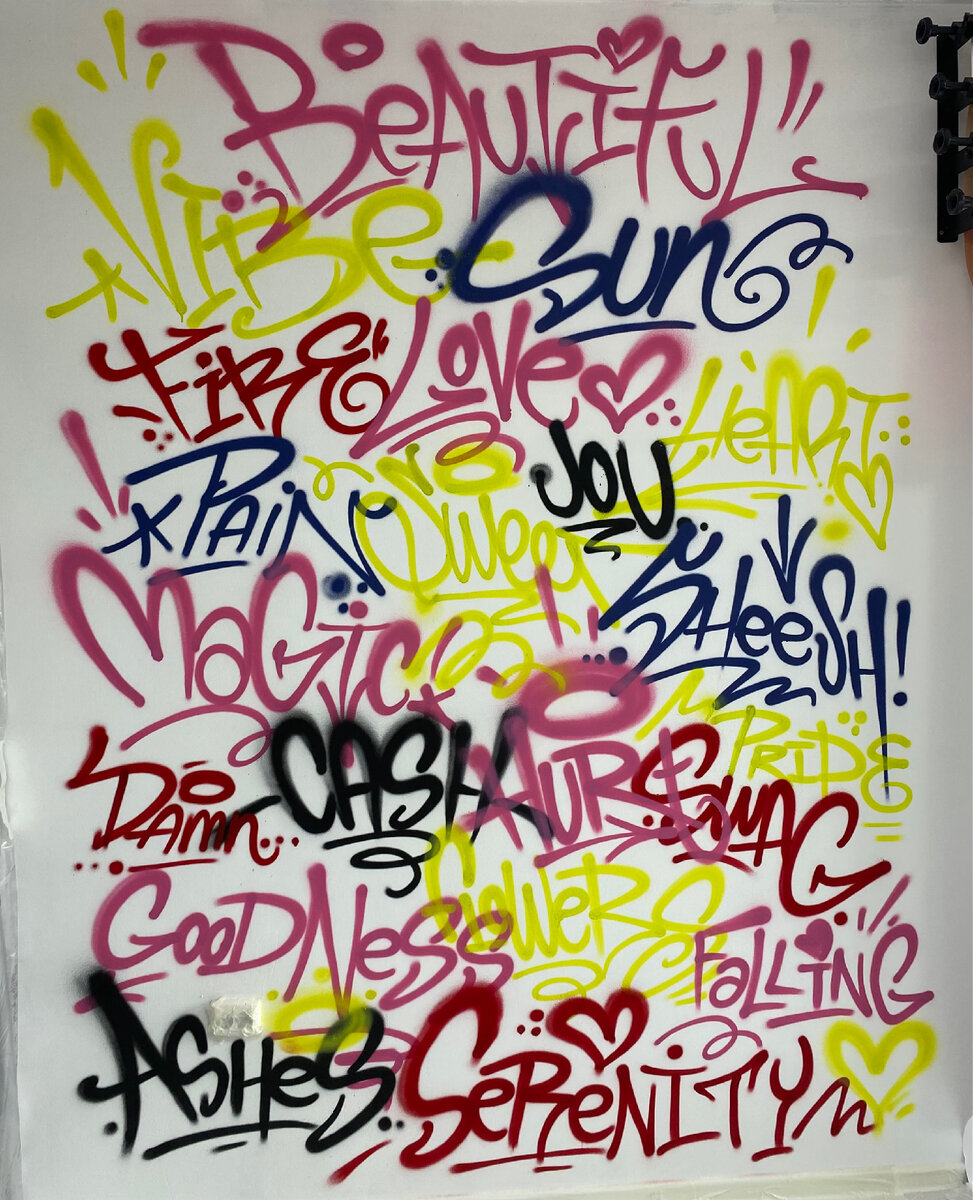 BeAUTiFUL
ViBe Sun
FiRE LOVe HeART
PAiN Sweet JOY
MaGiC SHeeSH!
DAmn CASH HURt SWAG PRiDE
GooDNeSS FlOWeRS FaLLiNG
ASHeS SeReNiTY